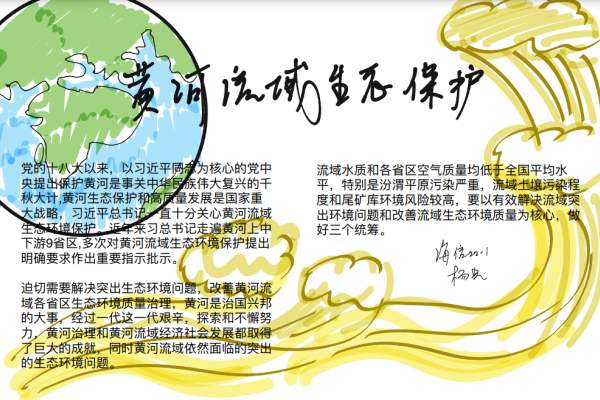 黄河流域生态保护
党的十八大以来，以习近平同志为核心的党中
央提出保护黄河是事关中华民族伟大复兴的千
秋大计,黄河生态保护和高质量发展是国家重
大战略，习近平总书记一直十分关心黄河流域
生态环境保护，近年来习总书记走遍黄河上中
下游9省区,多次对黄河流域生态环境保护提出
明确要求作出重要指示批示。
迫切需要解决突出生态环境问题，改善黄河流
域各省区生态环境质量治理，黄河是治国兴邦
的大事，经过一代这一代艰辛，探索和不懈努
力，黄河治理和黄河流域经济社会发展都取得
了巨大的成就，同时黄河流域依然面临的突出
的生态环境问题。
流域水质和各省区空气质量均低于全国平均水
平，特别是汾渭平原污染严重，流域土壤污染程
度和尾矿库环境风险较高，要以有效解决流域突
出环境问题和改善流域生态环境质量为核心，做
好三个统筹。